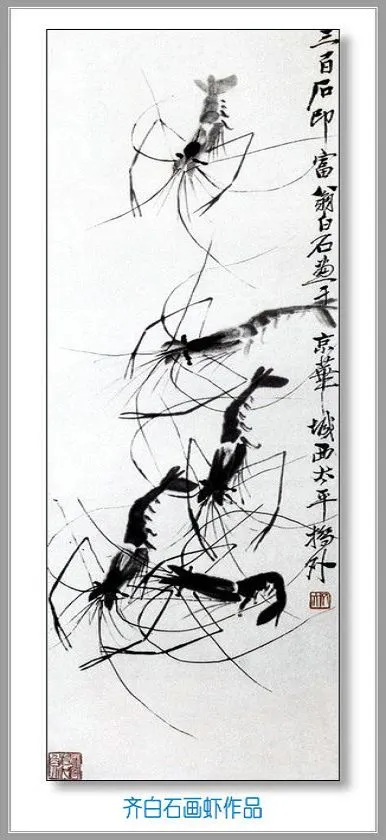 三百石印富翁白石画于京華城西太平橋外
齐白石画虾作品